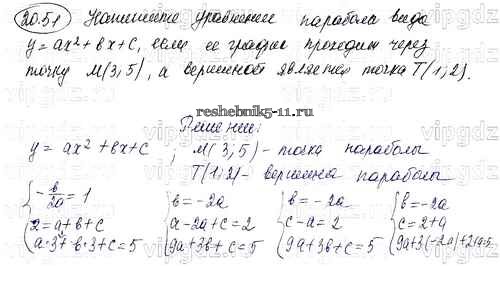 20.51 Напишите уравнение параболы вида
y = ax² + bx + c, если ее график проходит через
точку M(3,5), а вершиной является точка T(1,2).
reshebnik5-11.ru
Решение:
y = ax² + bx + c ; M(3,5) - точка параболы
T(1,2) - вершина параболы
{ -b/2a = 1
2 = a + b + c
a·3² + b·3 + c = 5
{ b = -2a
a - 2a + c = 2
9a + 3b + c = 5
{ b = -2a
c - a = 2
9a + 3b + c = 5
{ b = -2a
c = 2 + a
9a + 3(-2a) + 2 + a = 5
vipgdz